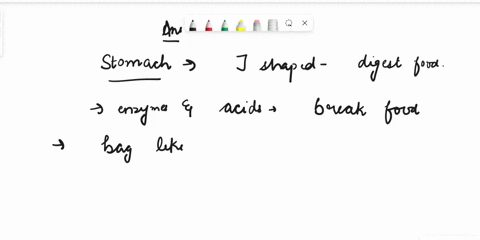 An
Stomach → J shaped - digest food.
→ enzymes & acids → break food
→ bag like